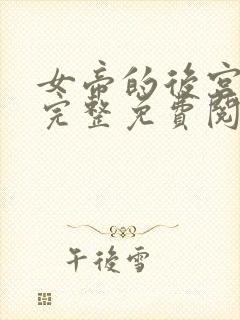 女帝的後宮
完整免費閱
午後雪